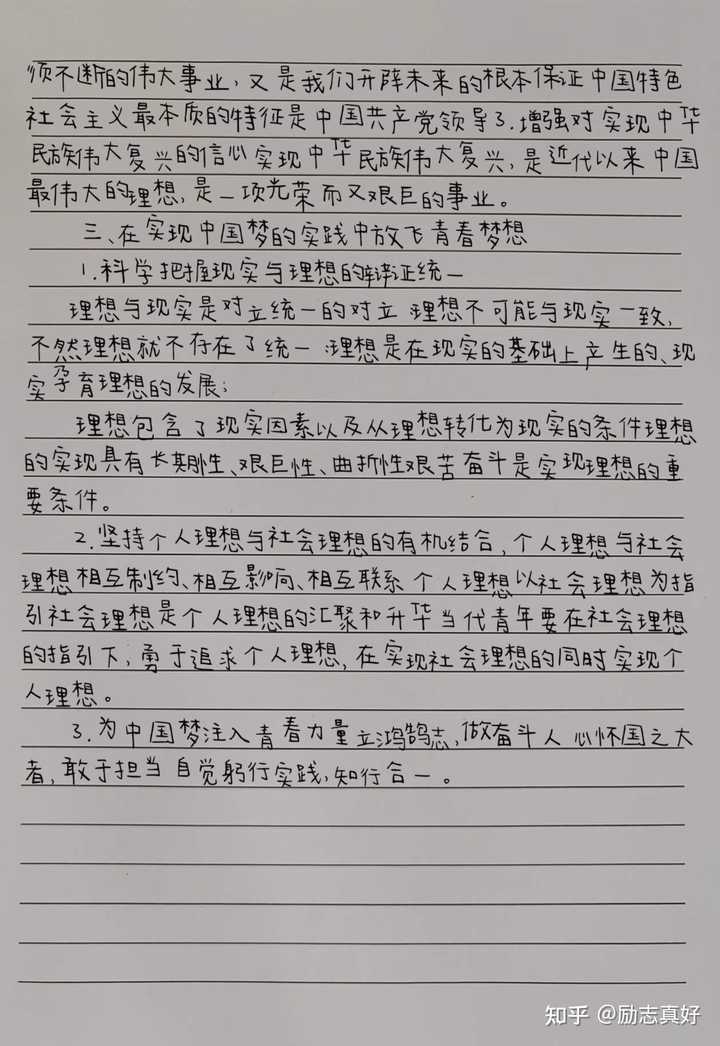 须不断的伟大事业,又是我们开辟未来的根本保证中国特色
社会主义最本质的特征是中国共产党领导3.增强对实现中华
民族伟大复兴的信心实现中华民族伟大复兴,是近代以来中国
最伟大的理想,是一项光荣而又艰巨的事业。
三、在实现中国梦的实践中放飞青春梦想
1.科学把握现实与理想的辩证统一
理想与现实是对立统一的对立:理想不可能与现实一致,
不然理想就不存在了统一:理想是在现实的基础上产生的、现
实孕育理想的发展;
理想包含了现实因素以及从理想转化为现实的条件理想
的实现具有长期性、艰巨性、曲折性艰苦奋斗是实现理想的重
要条件。
2.坚持个人理想与社会理想的有机结合,个人理想与社会
理想相互制约、相互影响、相互联系个人理想以社会理想为指
引社会理想是个人理想的汇聚和升华当代青年要在社会理想
的指引下,勇于追求个人理想,在实现社会理想的同时实现个
人理想。
3.为中国梦注入青春力量立鸿鹄志,做奋斗人心怀国之大
者,敢于担当自觉躬行实践,知行合一。
知乎 @励志真好